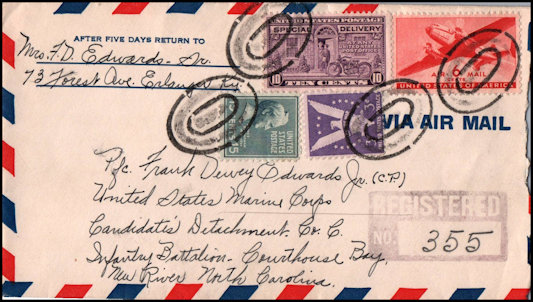 AFTER FIVE DAYS RETURN TO
Mrs. F.D. Edwards - Sr.
73 Forest Ave. Erlanger Ky.
UNITED STATES POSTAGE
SPECIAL DELIVERY
10 10
TEN CENTS
AIR MAIL
6
CENTS
UNITED STATES OF AMERICA
UNITED
STATES
POSTAGE
VIA AIR MAIL
Pfc. Frank Dewey Edwards Jr. (C.P.)
United States Marine Corps
Candidates' Detachment. Co. C.
Infantry Battalion - Courthouse Bay,
New River North Carolina.
REGISTERED
NO. 355